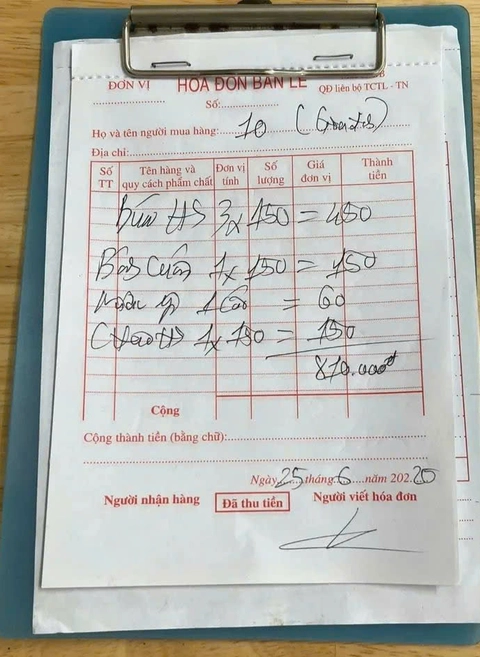 ĐƠN VỊ HÓA ĐƠN BÁN LẺ QĐ liên bộ TCTL - TN
Số:
Họ và tên người mua hàng: 10
Địa chỉ:
Số TT Tên hàng và quy cách phẩm chất Đơn vị tính Số lượng Giá đơn vị Thành tiền
Bún HS 3 x 150 = 450
1 x 150 = 150
= 60
Cháo HS 1 x 150 = 150
810.000đ
Cộng
Cộng thành tiền (bằng chữ):
Ngày 25 tháng 6 năm 202 20
Người nhận hàng Đã thu tiền Người viết hóa đơn